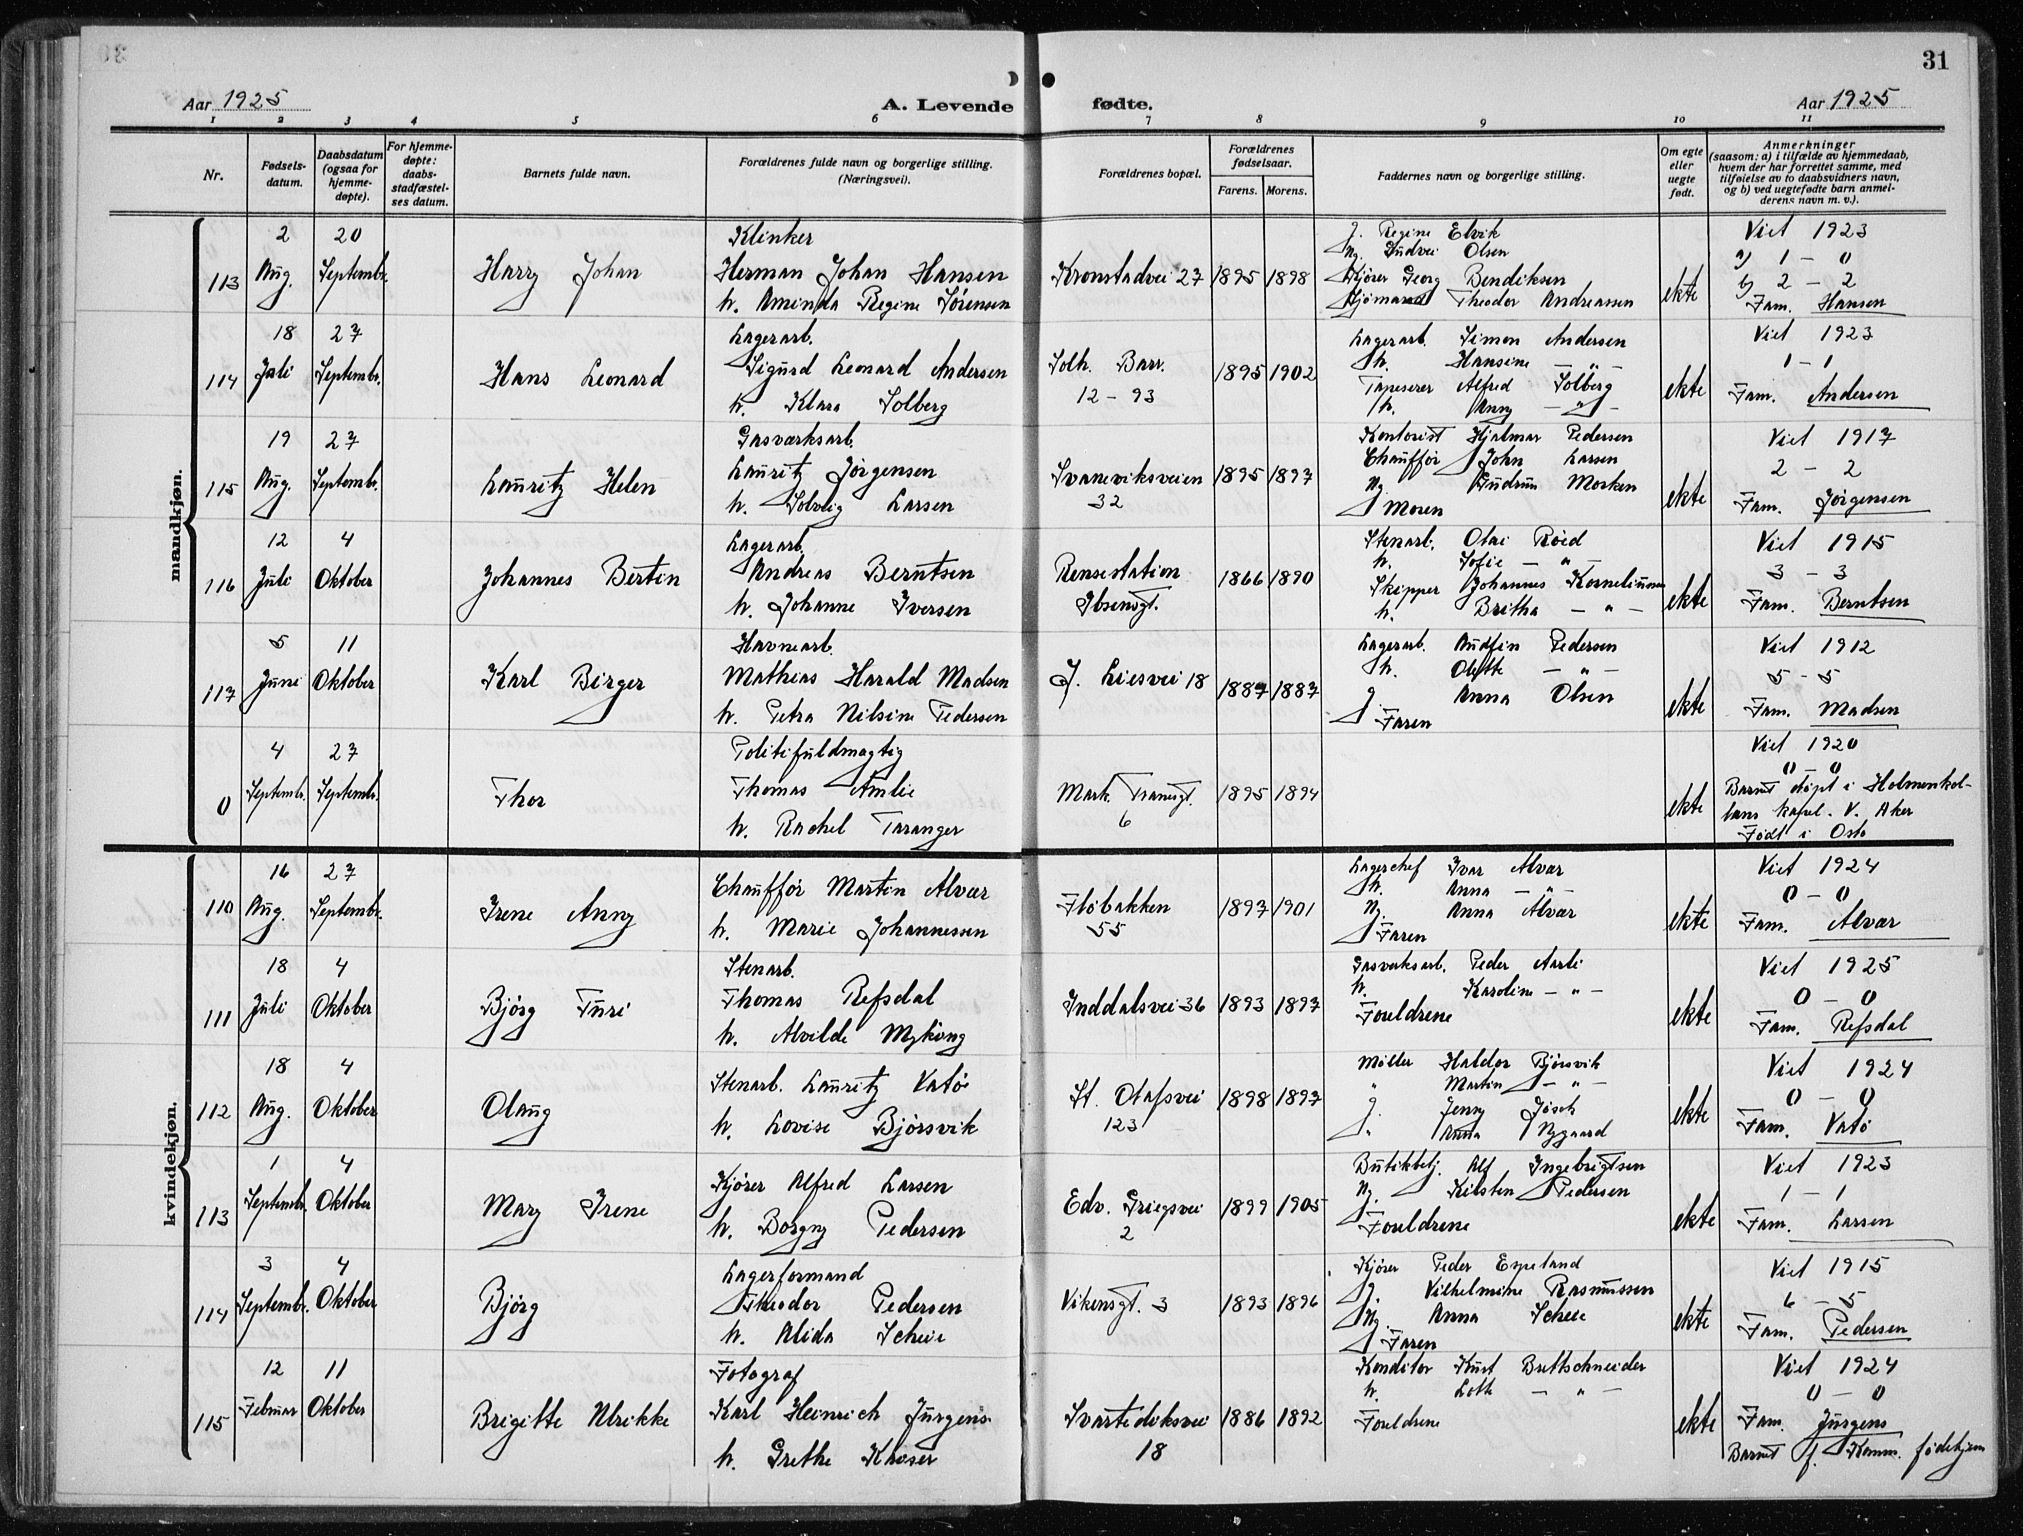 31
Aar 1925
A. Levende fødte.
Aar 1925
1 2 3 4 5 6 7 8 9 10 11
Nr.
Fødselsdatum.
Daabsdatum (ogsaa for hjemmedøpte).
For hjemmedøpte: daabsstadfæstelses datum.
Barnets fulde navn.
Forældrenes fulde navn og borgerlige stilling. (Næringsvei).
Forældrenes bopæl.
Forældrenes fødselsaar.
Farens. Morens.
Faddernes navn og borgerlige stilling.
Om egte eller uegte født.
Anmerkninger
(saasom: a) i tilfælde av hjemmedaab,
hvem der har forrettet samme, med
tilføielse av to daabsvidners navn,
og b) ved uegtefødte barn anmelderens navn m. v.).
mandkjøn.
113
2 Aug.
20 Septembr.
Harry Johan
Klinker
Herman Johan Hansen
h. Aminda Regine Sørensen
Kronstadvei 27
1895 1898
J. Regine Elvik
Ng. Gudvei Olsen
Kjører Georg Bendiksen
Sjømand Theodor Andreassen
ekte
Viet 1923
a) 1 - 0
b) 2 - 2
Fam. Hansen
114
18 Juli
27 Septembr.
Hans Leonard
Lagerarb.
Sigurd Leonard Andersen
h. Klara Solberg
Solh. Barr.
12 - 93
1895 1902
Lagerarb. Simon Andersen
h. Hansine — " —
Tapeserer Alfred Solberg
h. Anny — " —
ekte
Viet 1923
1 - 1
Fam. Andersen
115
19 Aug.
27 Septembr.
Lauritz Helen
Gasværksarb.
Lauritz Jørgensen
h. Solveig Larsen
Svaneviksveien
32
1895 1897
Kontorist Hjalmar Pedersen
Chauffør John Larsen
Ng. Gudrun Morken
Moren
ekte
Viet 1917
2 - 2
Fam. Jørgensen
116
12 Juli
4 Oktober
Johannes Bertin
Lagerarb.
Andreas Berntsen
h. Johanne Iversen
Rensestation
Ibsensgt.
1866 1890
Stenarb. Olai Røid
h. Sofie — " —
Skipper Johannes Korneliussen
h. Britha — " —
ekte
Viet 1915
3 - 3
Fam. Berntsen
117
5 Juni
11 Oktober
Karl Birger
Havnearb.
Mathias Harald Madsen
h. Petra Nilsine Pedersen
J. Liesvei 18
1887 1887
Lagerarb. Audfin Pedersen
h. Olette — " —
J. Anna Olsen
Faren
ekte
Viet 1912
5 - 5
Fam. Madsen
0
4 Septembr.
27 Septembr.
Thor
Politifuldmægtig
Thomas Amlie
h. Rachel Taranger
Mark. Tranesgt.
6
1895 1894
ekte
Viet 1920
0 - 0
Barnet døpt i Holmenkollens kapel. V. Aker
Født i Oslo
kvindekjøn.
110
16 Aug.
27 Septembr.
Irene Anny
Chauffør Martin Alvær
h. Marie Johannessen
Fløbakken
55
1897 1901
Lagerchef Ivar Alvær
h. Anna — " —
Ng. Anna Alvær
Faren
ekte
Viet 1924
0 - 0
Fam. Alvær
111
18 Juli
4 Oktober
Bjørg Turi
Stenarb.
Thomas Refsdal
h. Alvilde Myking
Inddalsvei 36
1893 1897
Gasværksarb. Peder Aarli
h. Karoline — " —
Foreldrene
ekte
Viet 1925
0 - 0
Fam. Refsdal
112
18 Aug.
4 Oktober
Olaug
Stenarb. Lauritz Vatø
h. Lovise Bjørsvik
St. Olafsvei
123
1898 1897
Møller Haldor Bjørsvik
" Martin — " —
J. Jenny Jøsok
" Anna Nygaard
ekte
Viet 1924
0 - 0
Fam. Vatø
113
1 Septembr.
4 Oktober
Mary Irene
Kjører Alfred Larsen
h. Borgny Pedersen
Edv. Griegsvei
2
1899 1905
Butikbetj. Alf Ingebrigtsen
Ng. Kirsten Pedersen
Foreldrene
ekte
Viet 1923
1 - 1
Fam. Larsen
114
3 Septembr.
4 Oktober
Bjørg
Lagerformand
Theodor Pedersen
h. Alida Scheie
Vikensgt. 3
1893 1896
Kjører Peder Espeland
J. Vilhelmine Rasmussen
Ng. Anna Scheie
Faren
ekte
Viet 1915
6 - 5
Fam. Pedersen
115
12 Februar
11 Oktober
Brigitte Ulrikke
Fotograf
Karl Heinrich Jürgens
h. Grethe Kaoser
Svartediksvei
18
1886 1892
Konditor Kurt Brettschneider
h. Lotte — " —
Foreldrene
ekte
Viet 1924
0 - 0
Fam. Jürgens
Barnet f. Komm. fødehjem